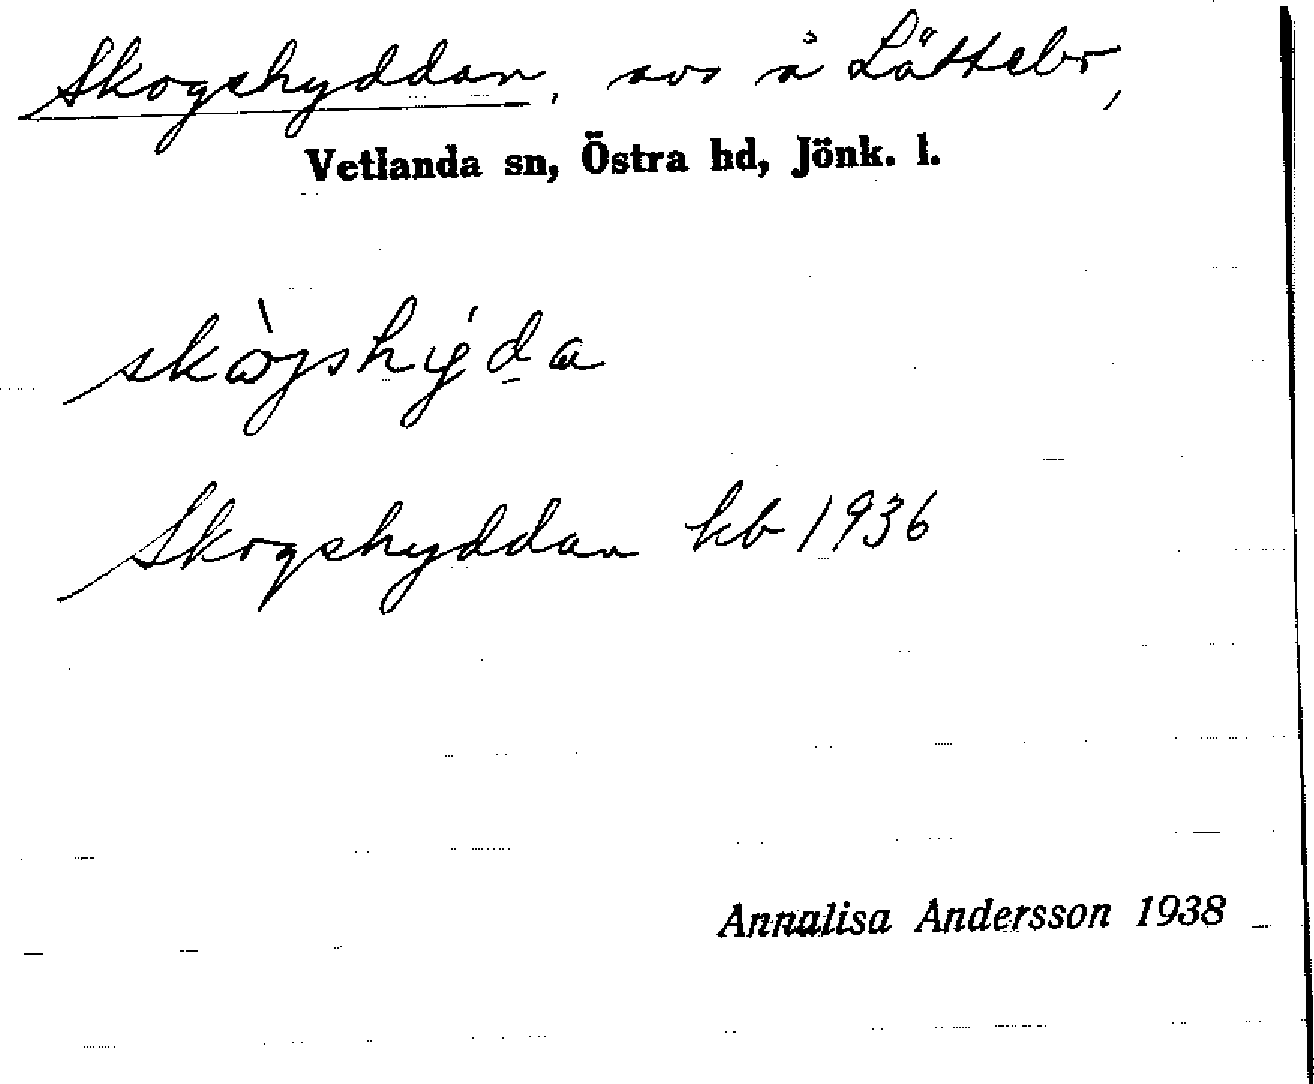 Skogshyddan, avs å Lättebo,
Vetlanda sn, Östra hd, Jönk. l.
skògshýda
Skogshyddan kb 1936
Annalisa Andersson 1938